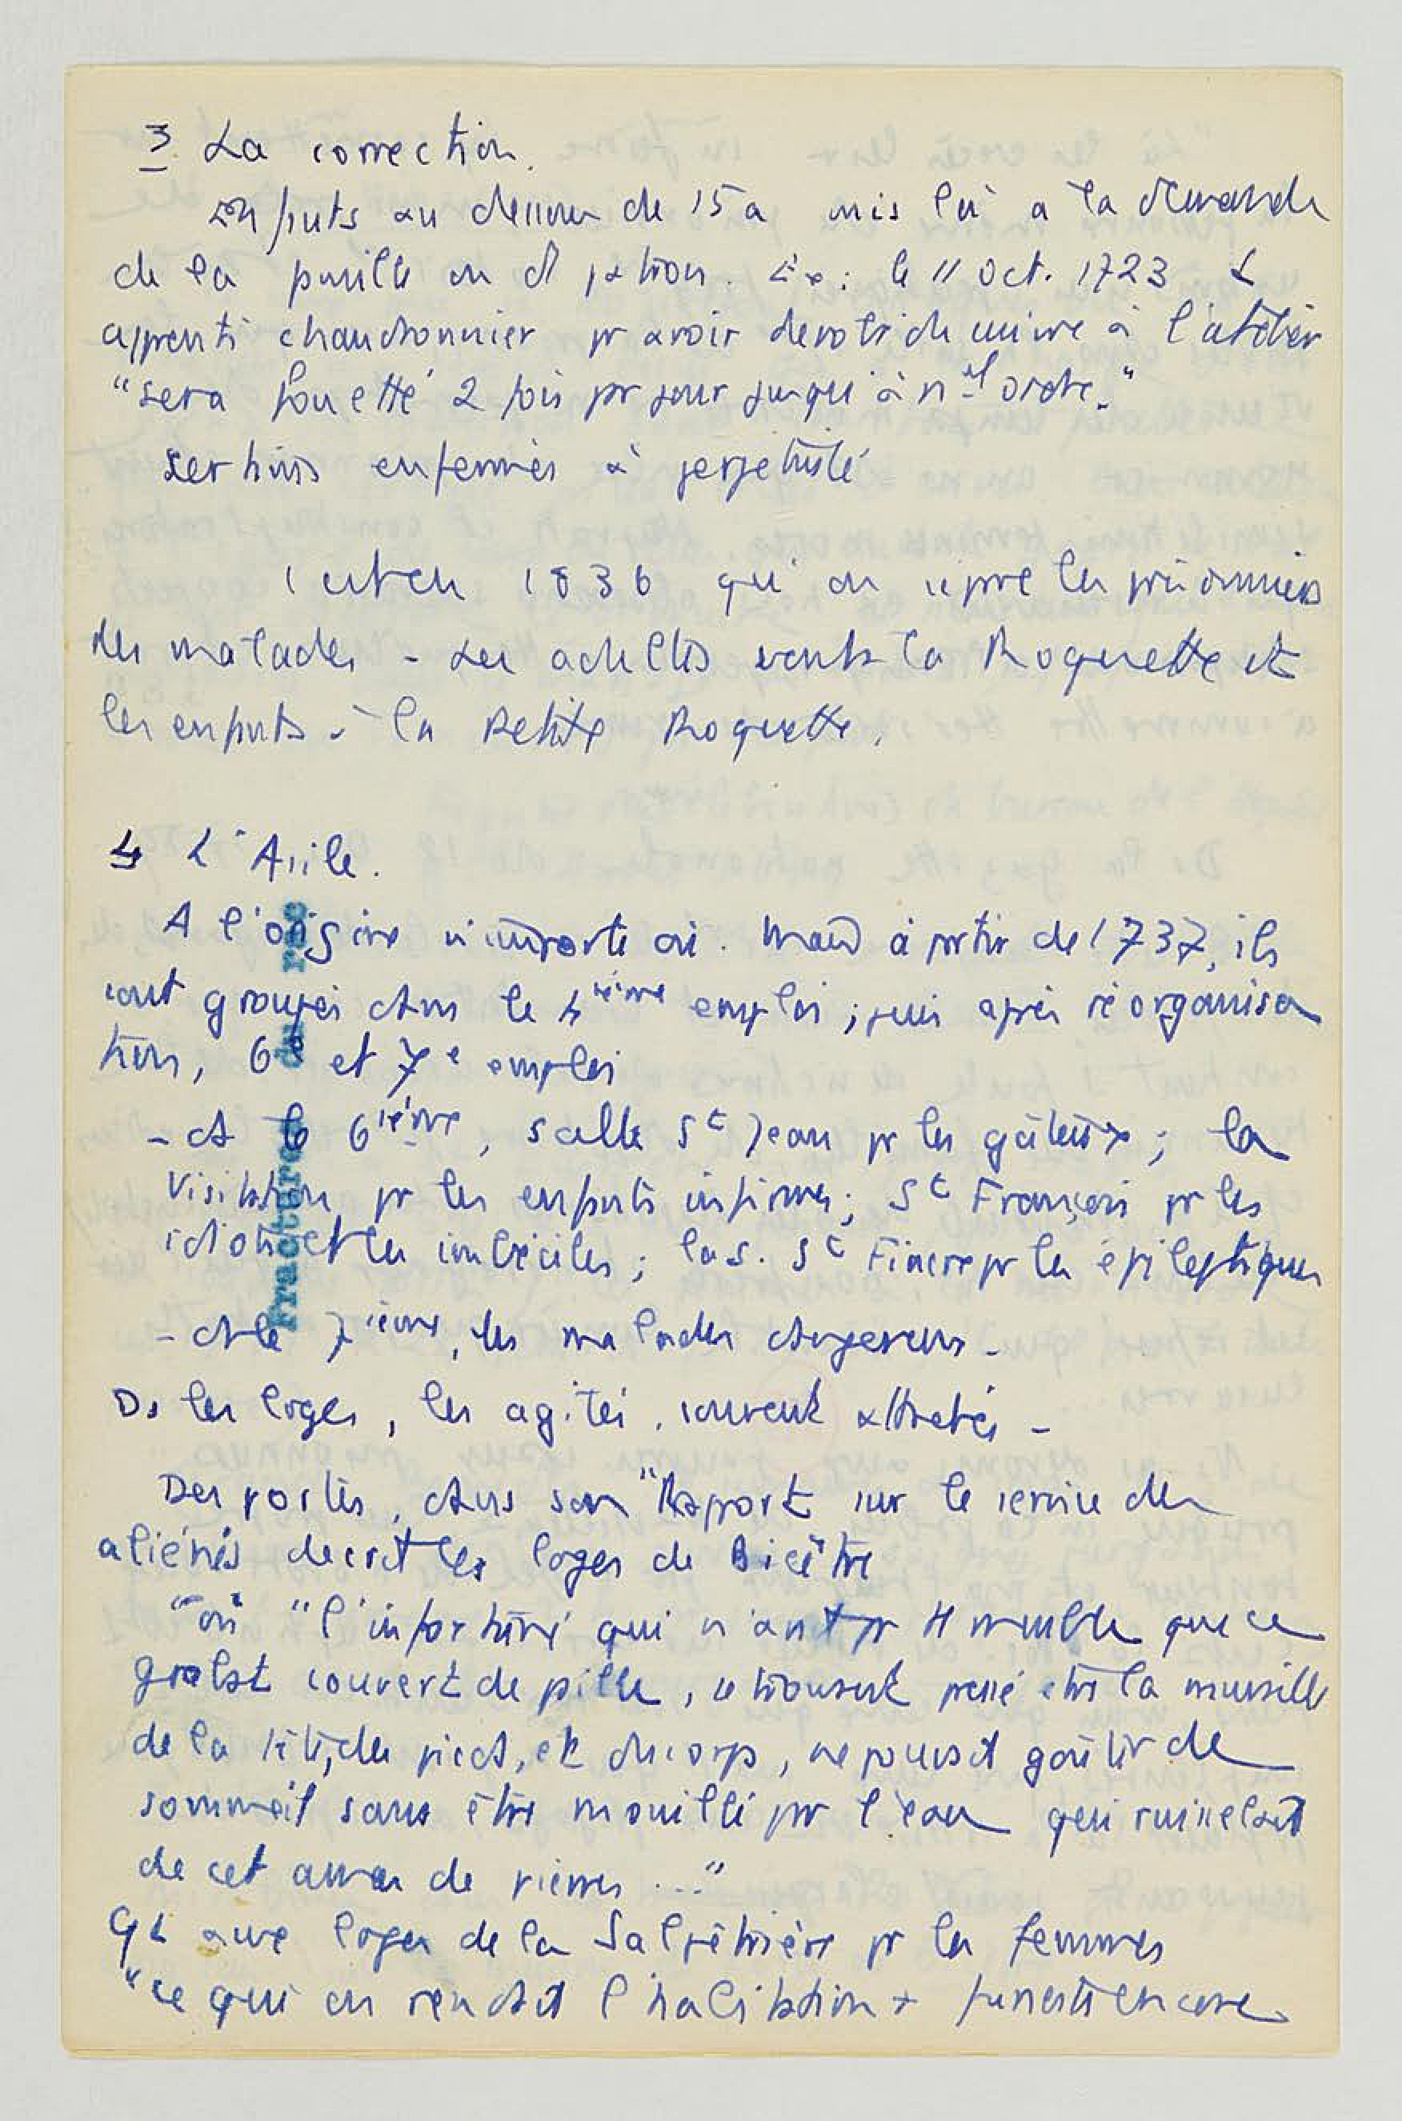 3 La correction.
Enfants au dessous de 15 a mis là à la demande
de la famille ou d'1 patron. Ex : le 11 oct. 1723 1
apprenti chaudronnier pr avoir derobé du cuivre à l'atelier
"sera fouetté 2 fois par jour jusqu'à nel ordre."
Certains enfermés à perpétuité
C'est en 1836 qu'on sépare les prisonniers
des malades - Les adultes vont à la Roquette et
les enfants à la Petite Roquette.
4 L'Asile.
A l'origine n'importe où. Mais à partir de 1737, ils
sont groupés dans le 4ième emploi ; puis après réorganisa
tion, 6e et 7e emploi
- ds le 6ième, salle St Jean pr les gâteux ; la
Visitation pr les enfants infirmes ; St François pr les
idiots et les imbéciles ; la s. St Fiacre pr les épileptiques
- ds le 7ième, les malades dangereux -
Ds les loges, les agités, souvent attachés -
Des portes, dans son "Rapport sur le service des
aliénés decrit les loges de Bicêtre
"où "l'infortuné qui n'avait pr tt meuble que ce
grabat couvert de paille, se trouvant pressé contre la muraille
de la tête, des pieds, et du corps, ne pouvait goûter de
sommeil sans être mouillé par l'eau qui ruisselait
de cet amas de pierres ..."
Qt aux loges de la Salpêtrière pr les femmes
"ce qui en rendait l'habitation + funeste encore
Fractures du rac